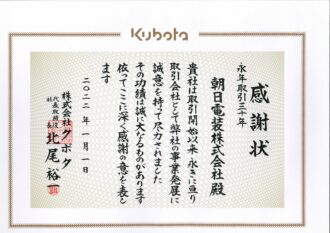 Kubota
感謝状
永年取引三十年
朝日電装株式会社殿
貴社は取引開始以来永きに亘り
取引会社として弊社の事業発展に
誠意を持って尽力されました
その功績は誠に大なるものがあります
依ってここに深く感謝の意を表し
ます
二〇二二年一月一日
株式会社クボタ
代表取締役
社長
北尾裕一